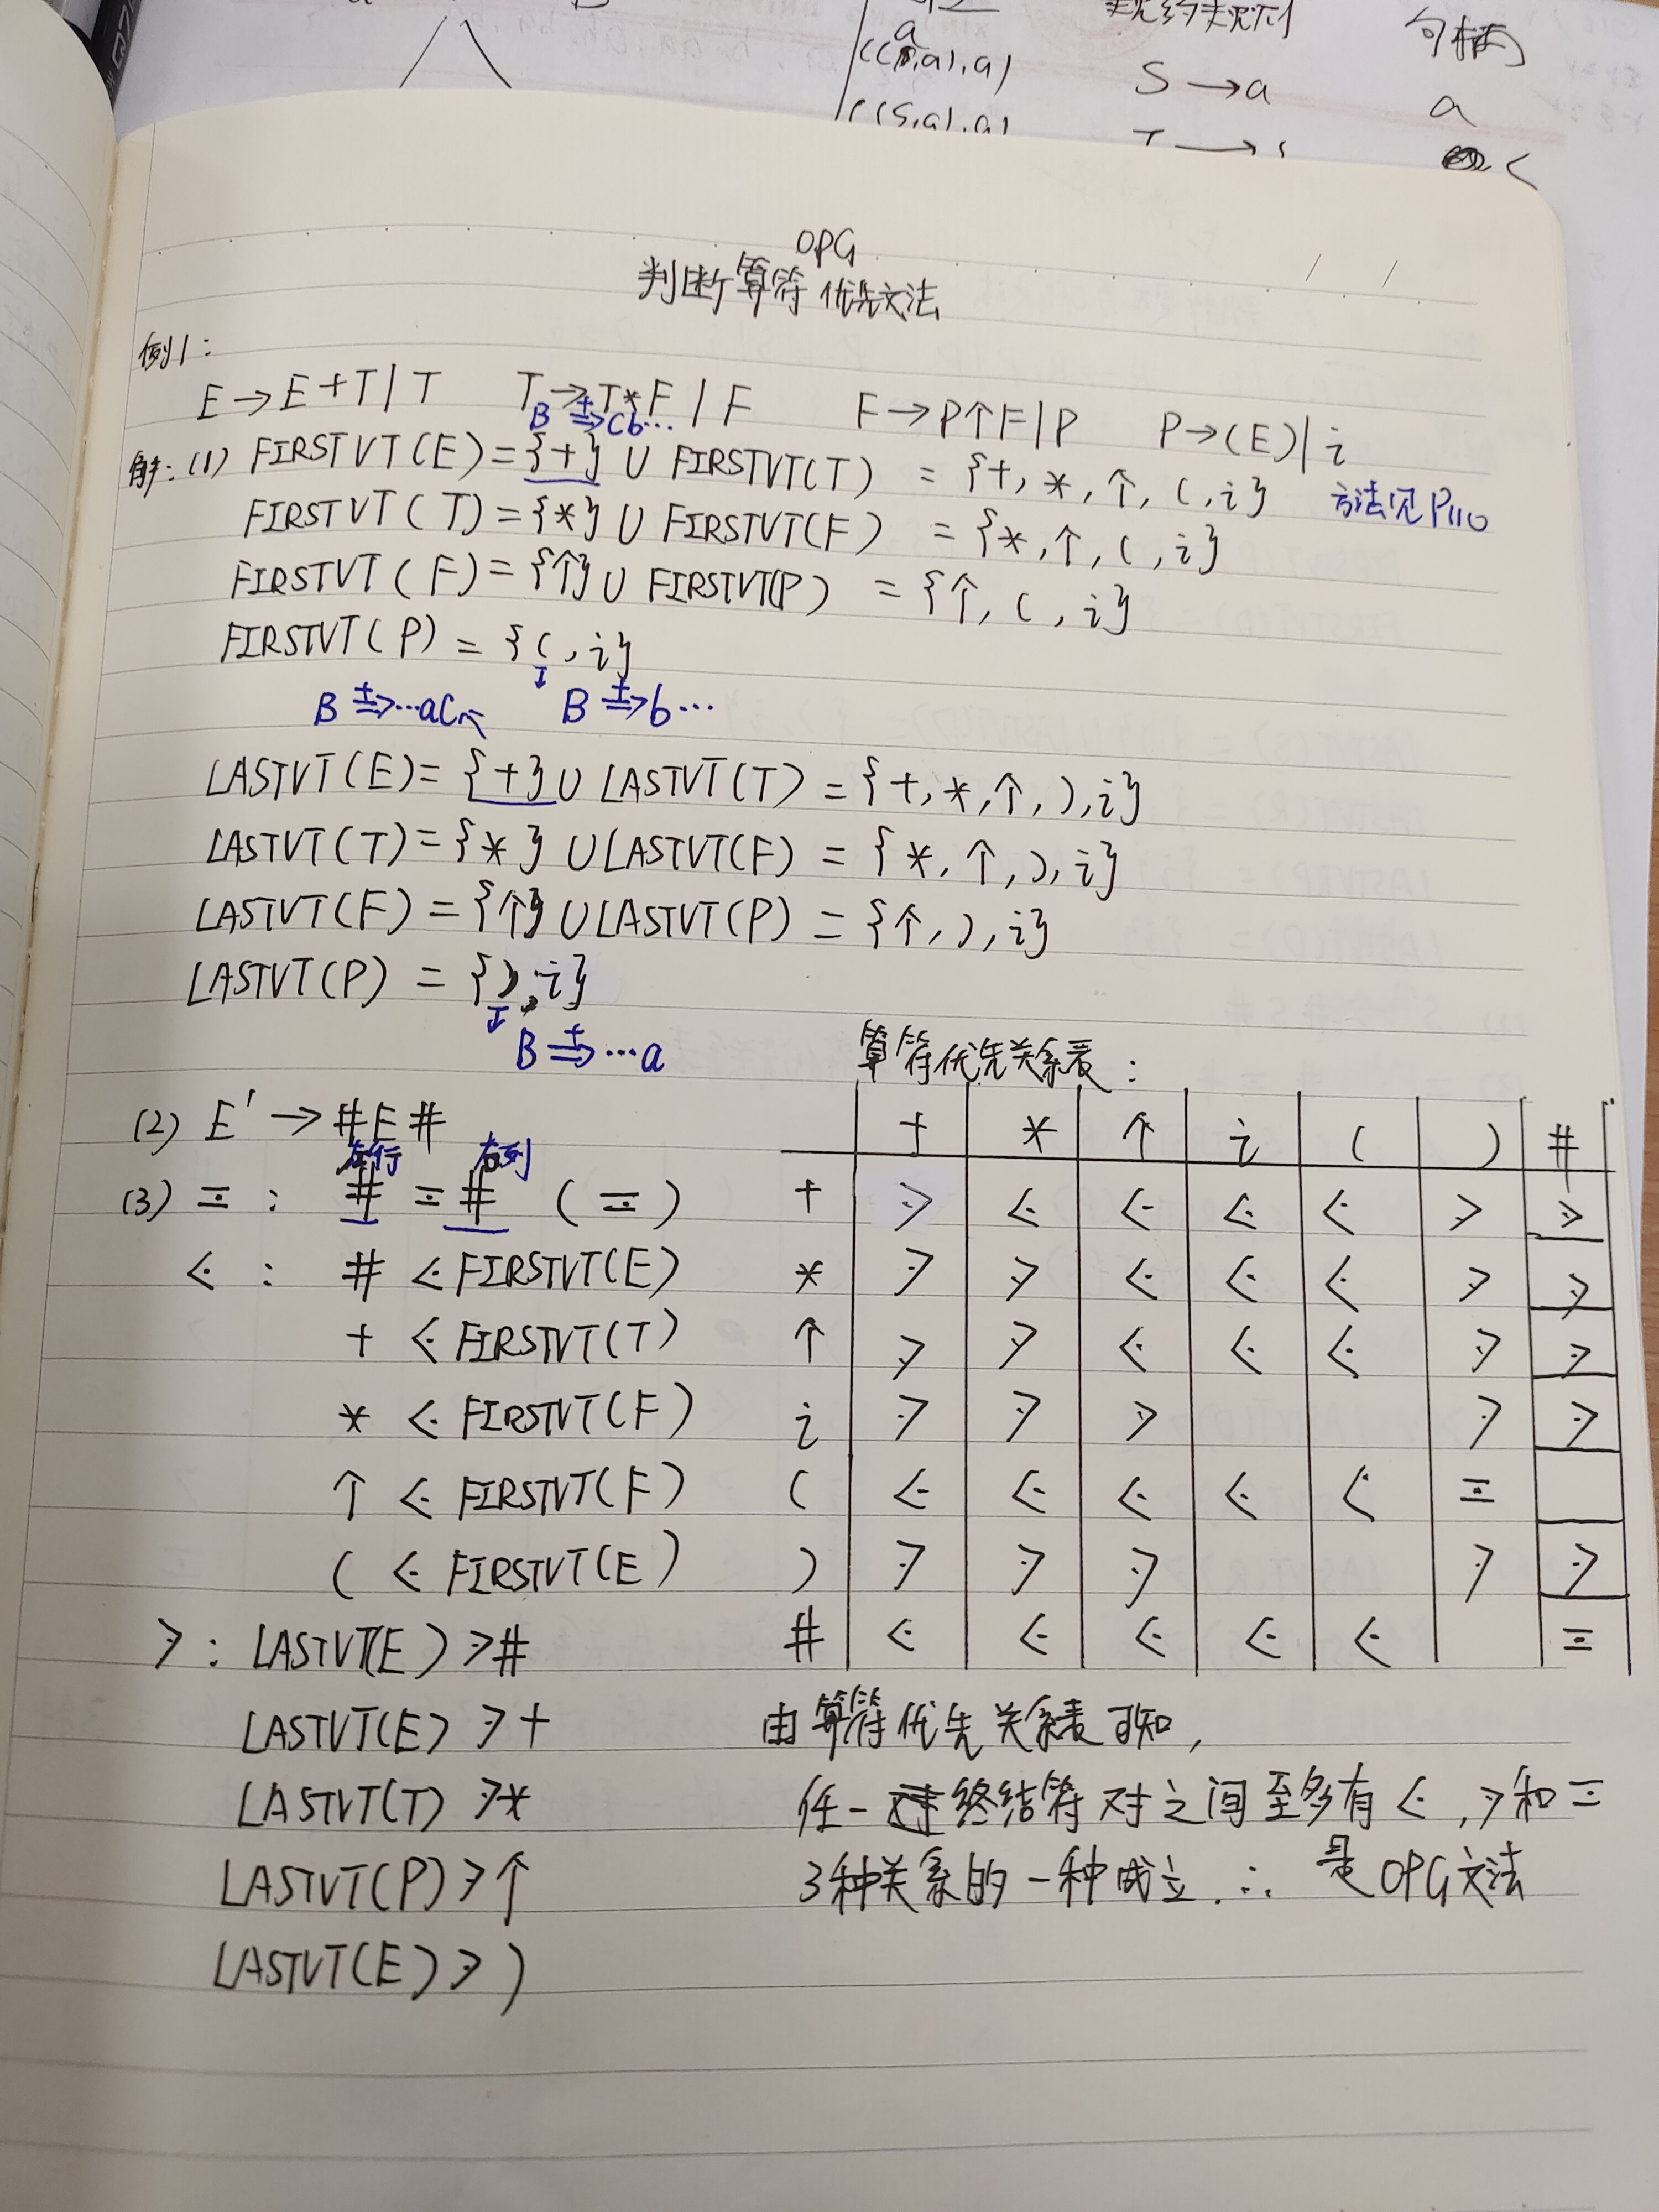 ((a,a),a)
S → a
a
((S,a),a)
OPG
判断算符优先文法
例1:
E → E+T | T T → T*F | F F → P↑F | P P → (E) | i
B ⇒⁺ Cb…
解:(1) FIRSTVT(E) = {+} ∪ FIRSTVT(T) = {+, *, ↑, (, i} 方法见P110
FIRSTVT(T) = {*} ∪ FIRSTVT(F) = {*, ↑, (, i}
FIRSTVT(F) = {↑} ∪ FIRSTVT(P) = {↑, (, i}
FIRSTVT(P) = {(, i}
B ⇒⁺ …aC B ⇒⁺ b…
LASTVT(E) = {+} ∪ LASTVT(T) = {+, *, ↑, ), i}
LASTVT(T) = {*} ∪ LASTVT(F) = {*, ↑, ), i}
LASTVT(F) = {↑} ∪ LASTVT(P) = {↑, ), i}
LASTVT(P) = {), i}
B ⇒⁺ …a
(2) E' → #E#
左行 右列
(3) ≡ : # ≡ # ( ≡ )
⋖ : # ⋖ FIRSTVT(E)
+ ⋖ FIRSTVT(T)
* ⋖ FIRSTVT(F)
↑ ⋖ FIRSTVT(F)
( ⋖ FIRSTVT(E)
⋗ : LASTVT(E) ⋗ #
LASTVT(E) ⋗ +
LASTVT(T) ⋗ *
LASTVT(P) ⋗ ↑
LASTVT(E) ⋗ )
算符优先关系表:
+ * ↑ i ( ) #
+ ⋗ ⋖ ⋖ ⋖ ⋖ ⋗ ⋗
* ⋗ ⋗ ⋖ ⋖ ⋖ ⋗ ⋗
↑ ⋗ ⋗ ⋖ ⋖ ⋖ ⋗ ⋗
i ⋗ ⋗ ⋗ ⋗ ⋗
( ⋖ ⋖ ⋖ ⋖ ⋖ ≡
) ⋗ ⋗ ⋗ ⋗ ⋗
# ⋖ ⋖ ⋖ ⋖ ⋖ ≡
由算符优先关系表可知,
任一终结符对之间至多有⋖,⋗和≡
3种关系的一种成立.∴ 是OPG文法